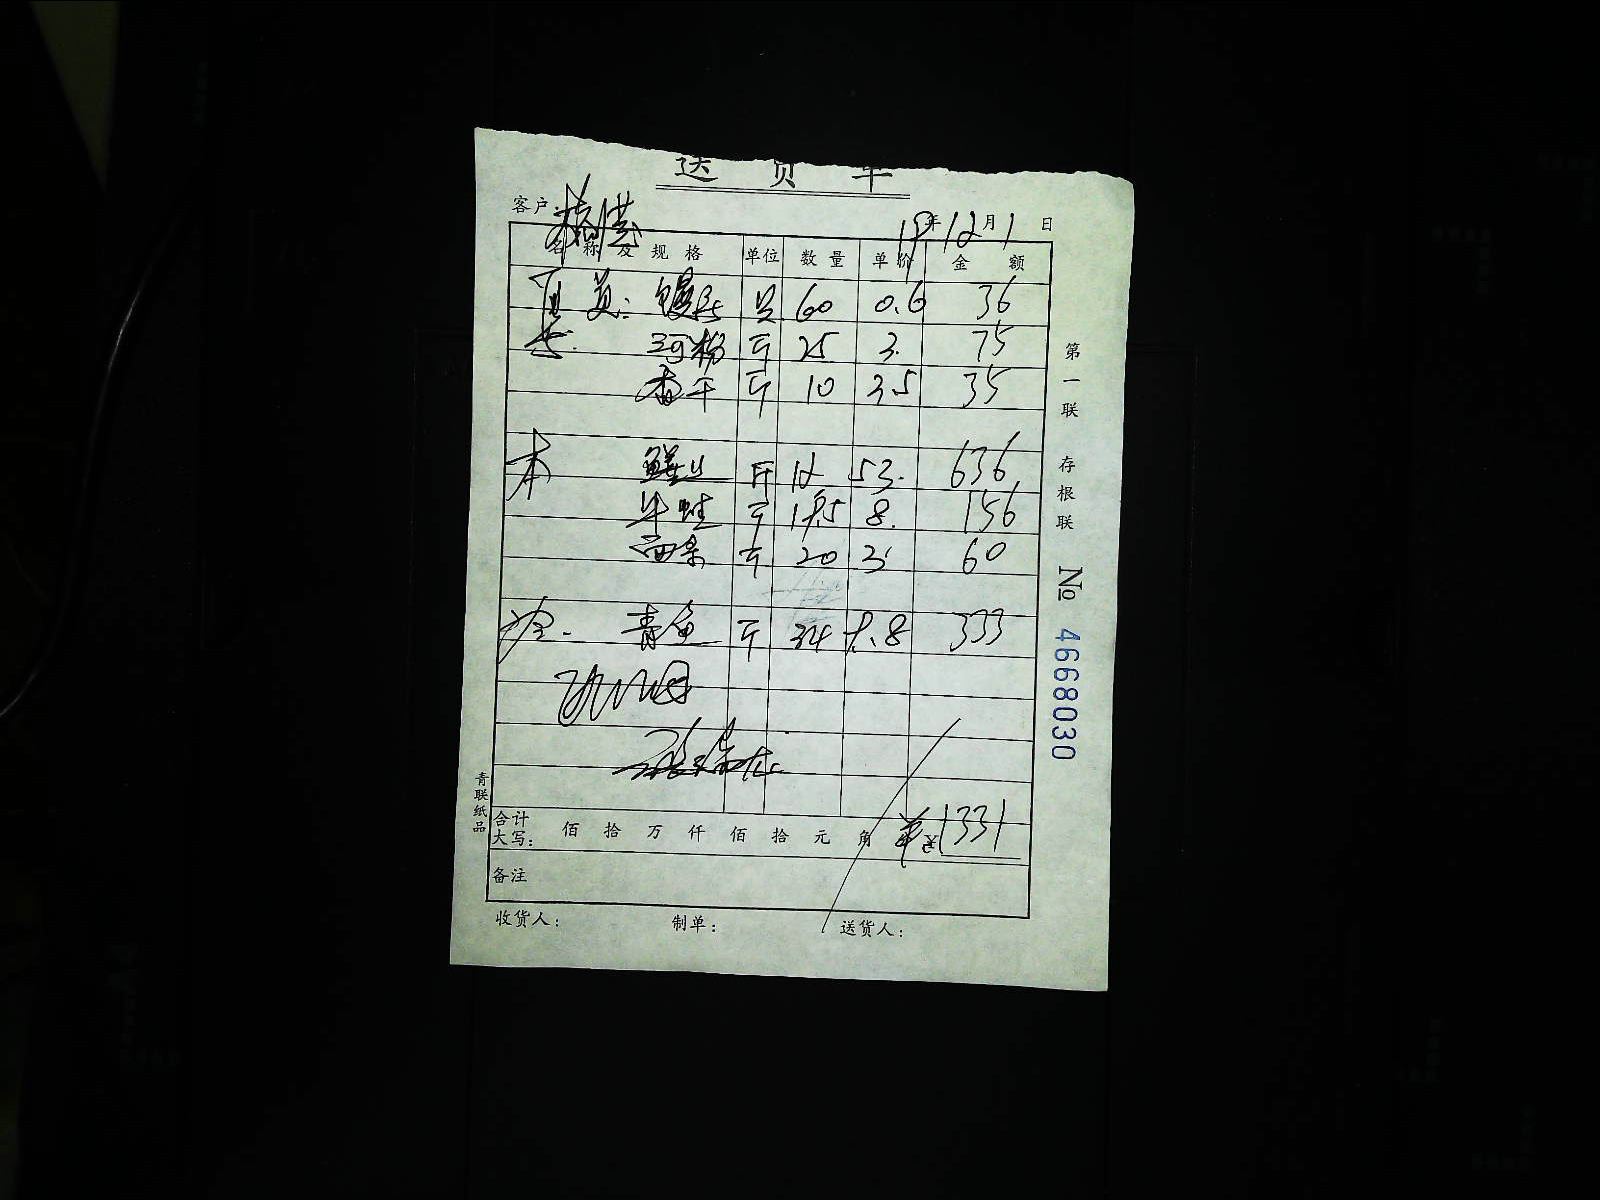 送货单
客户:
19年12月1日
名称及规格 单位 数量 单价 金额
员: 馒头 只 60 0.6 36
河粉 斤 25 3. 75
香干 斤 10 3.5 35
斤 12 53. 636
牛蛙 斤 19.5 8. 156
西京 斤 20 3 60
青鱼 斤 34 9.8 333
合计
大写: 佰 拾 万 仟 佰 拾 元 角 1331
备注
收货人: 制单: 送货人:
第一联 存根联 № 4668030
青联纸品